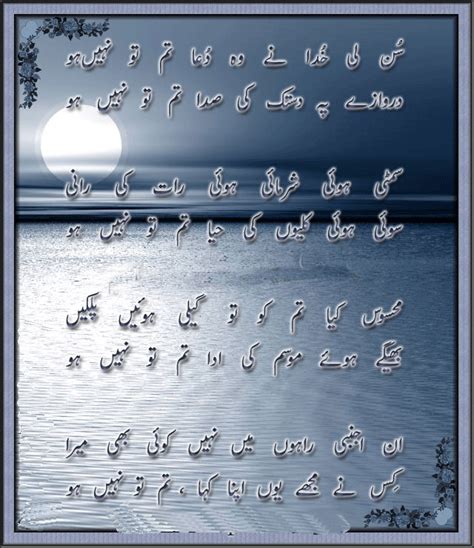 سُن لی خُدا نے وہ دُعا تم تو نہیں ہو
دروازے پہ دستک کی صدا تم تو نہیں ہو
سمٹی ہوئی شرمائی ہوئی رات کی رانی
سوئی ہوئی کلیوں کی حیا تم تو نہیں ہو
محسوس کیا تم کو تو گیلی ہوئیں پلکیں
بھیگے ہوئے موسم کی ادا تم تو نہیں ہو
ان اجنبی راہوں میں نہیں کوئی بھی میرا
کِس نے مجھے یوں اپنا کہا ، تم تو نہیں ہو